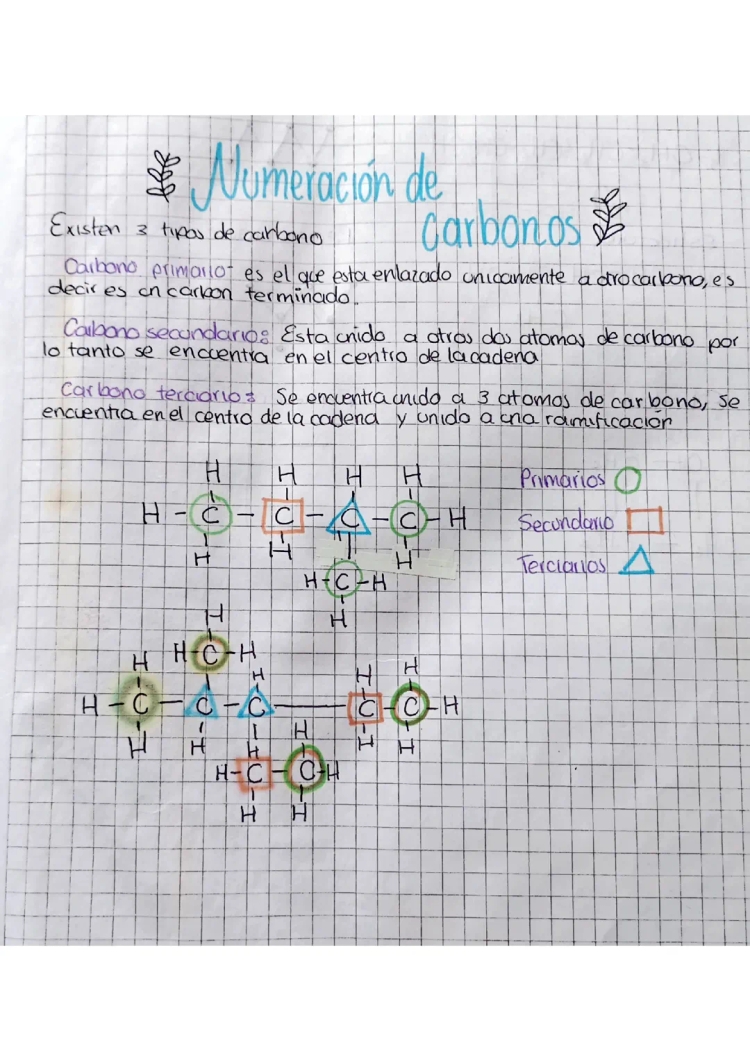 Numeración de
carbonos
Existen 3 tipos de carbono
Carbono primario- es el que esta enlazado unicamente a otro carbono, es
decir es un carbon terminado.
Carbono secundario: Esta unido a otros dos atomos de carbono por
lo tanto se encuentra en el centro de la cadena
Carbono terciario: Se encuentra unido a 3 atomos de carbono, se
encuentra en el centro de la cadena y unido a una ramificación
H H H H
H - C - C - C - C - H
H H H
H-C-H
H
Primarios
Secundario
Terciarios
H
H-C-H
H H H H
H - C - C - C - C - C - H
H H H H H H
H-C-C-H
H H